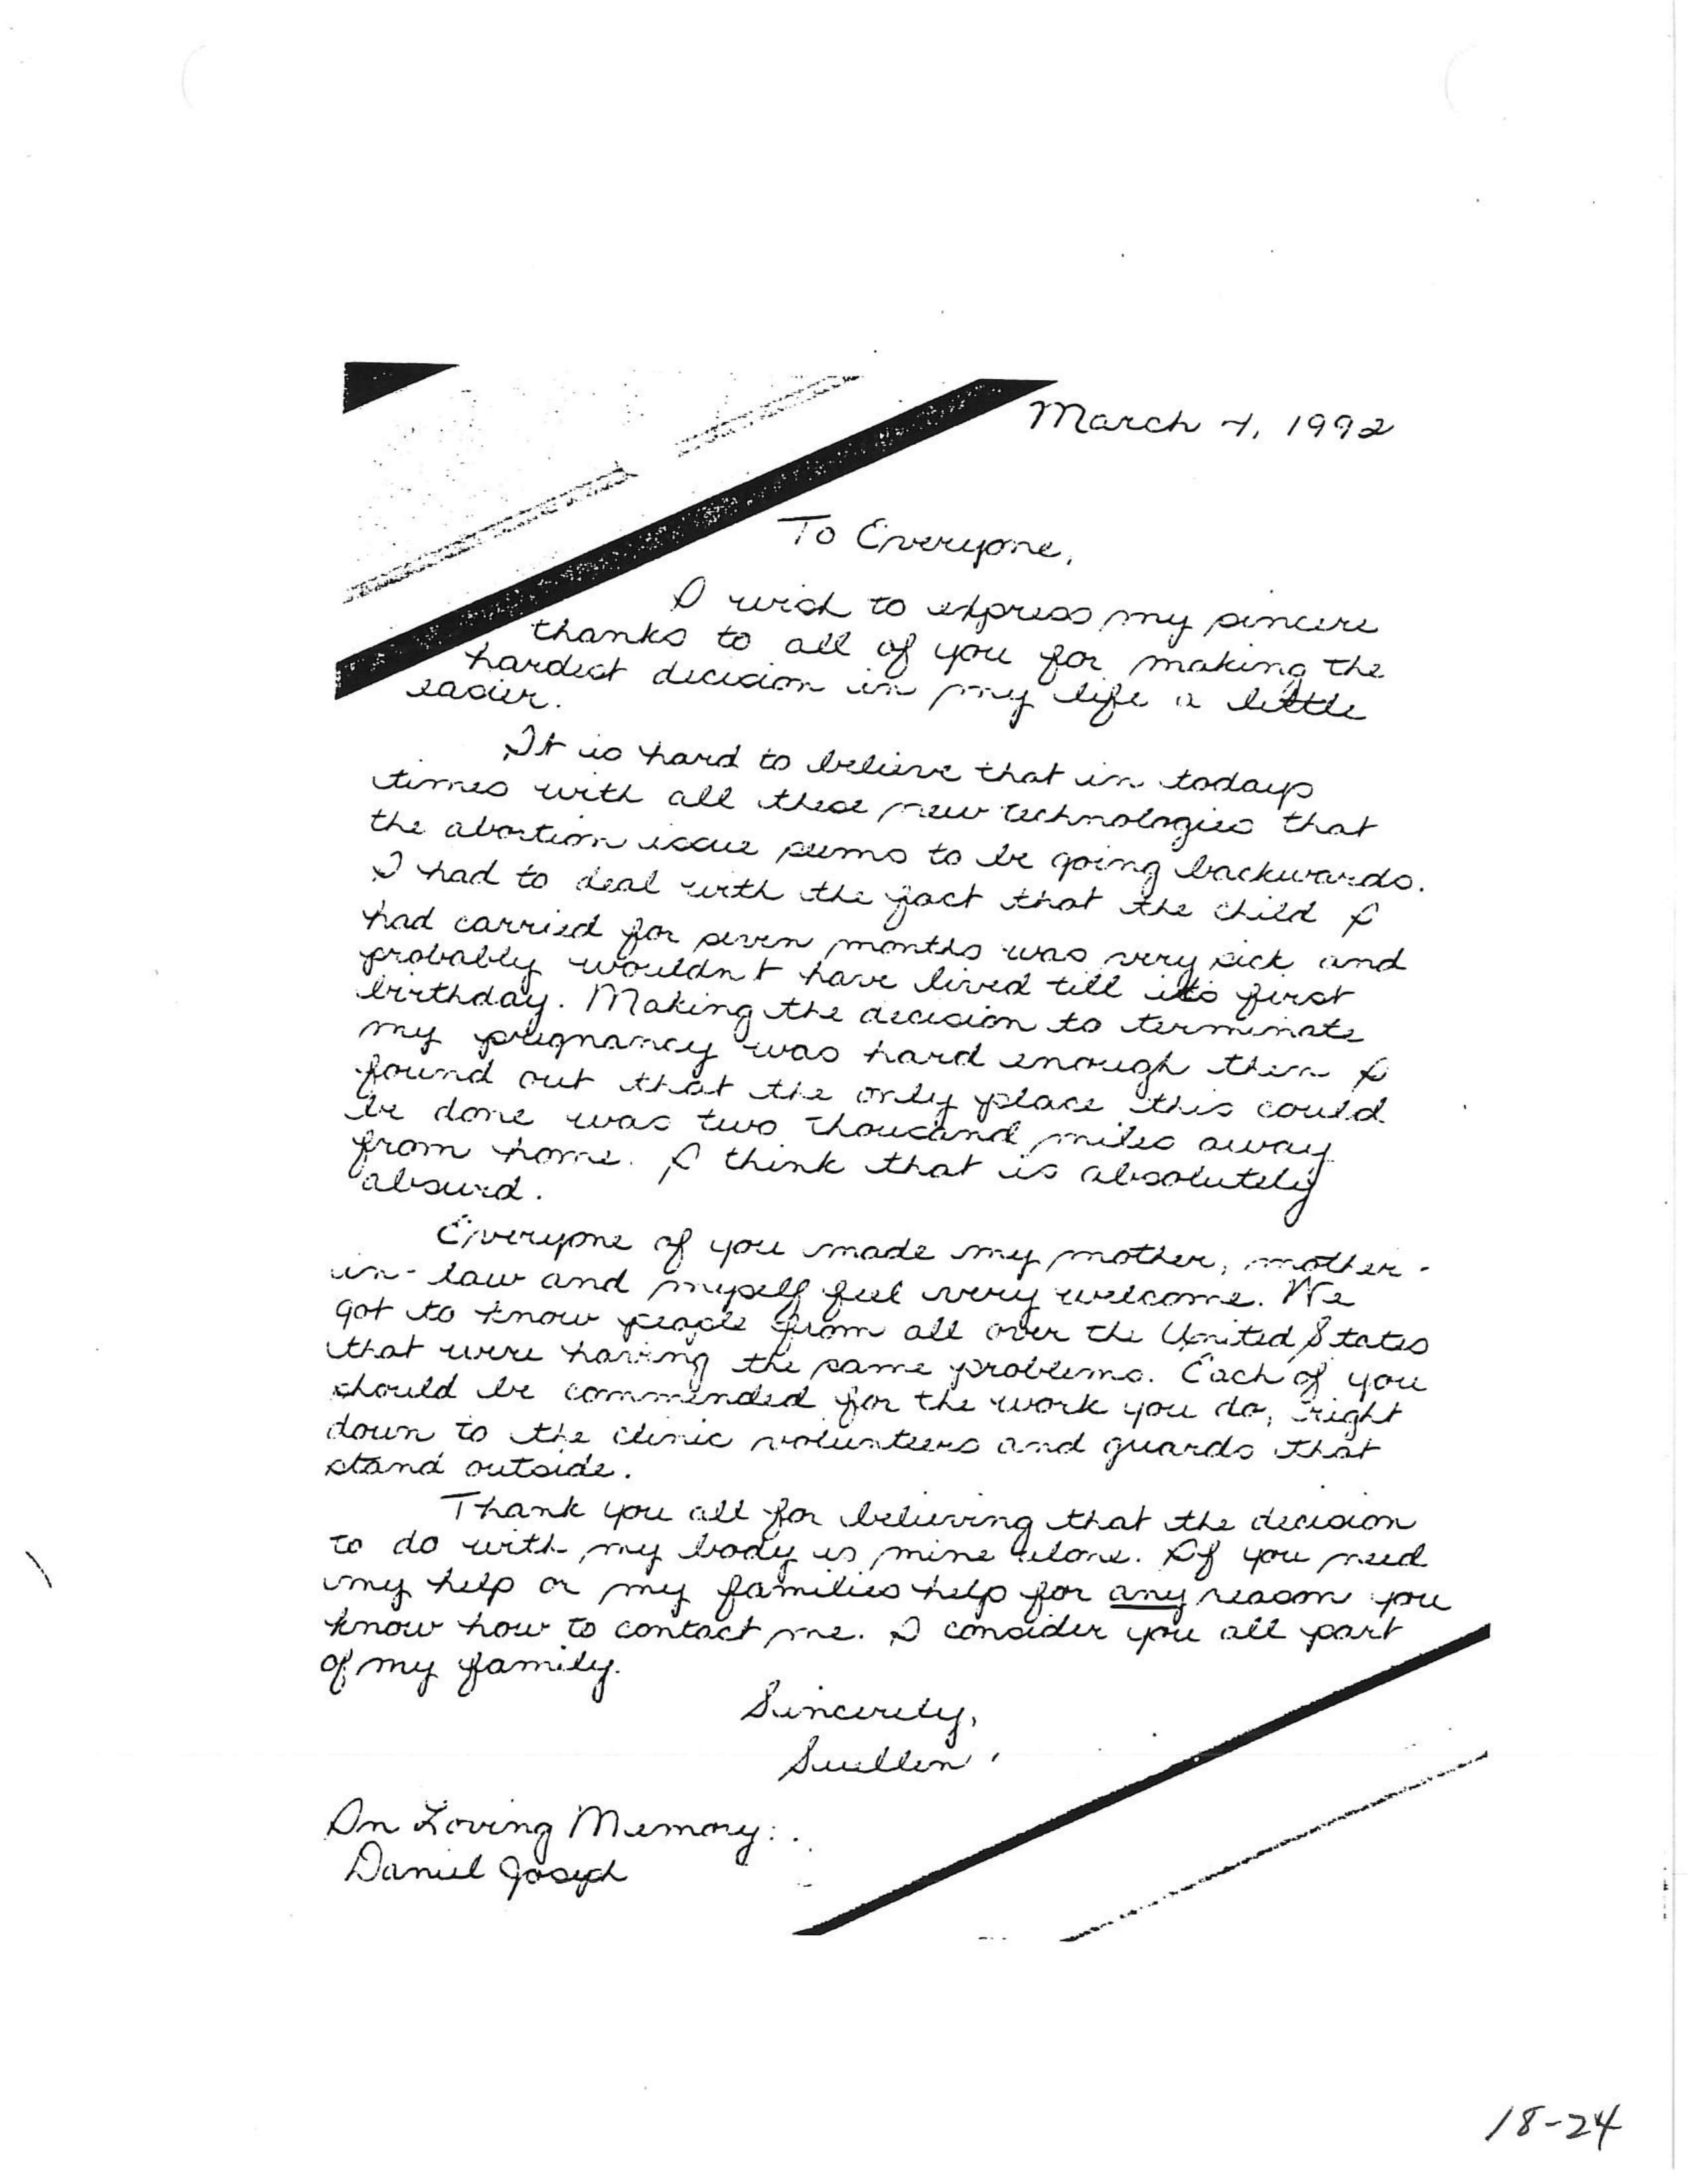 March 4, 1992
To Everyone,
I wish to express my sincere
thanks to all of you for making the
hardest decision in my life a little
easier.
It is hard to believe that in todays
times with all these new technologies that
the abortion issue seems to be going backwards.
I had to deal with the fact that the child I
had carried for seven months was very sick and
probably wouldn't have lived till its first
birthday. Making the decision to terminate
my pregnancy was hard enough then I
found out that the only place this could
be done was two thousand miles away
from home. I think that is absolutely
absurd.
Everyone of you made my mother, mother-
in-law and myself feel very welcome. We
got to know people from all over the United States
that were having the same problems. Each of you
should be commended for the work you do, right
down to the clinic volunteers and guards that
stand outside.
Thank you all for believing that the decision
to do with my body is mine alone. If you need
my help or my families help for any reason you
know how to contact me. I consider you all part
of my family.
Sincerely,
Suellen
In Loving Memory:
Daniel Joseph
18-24